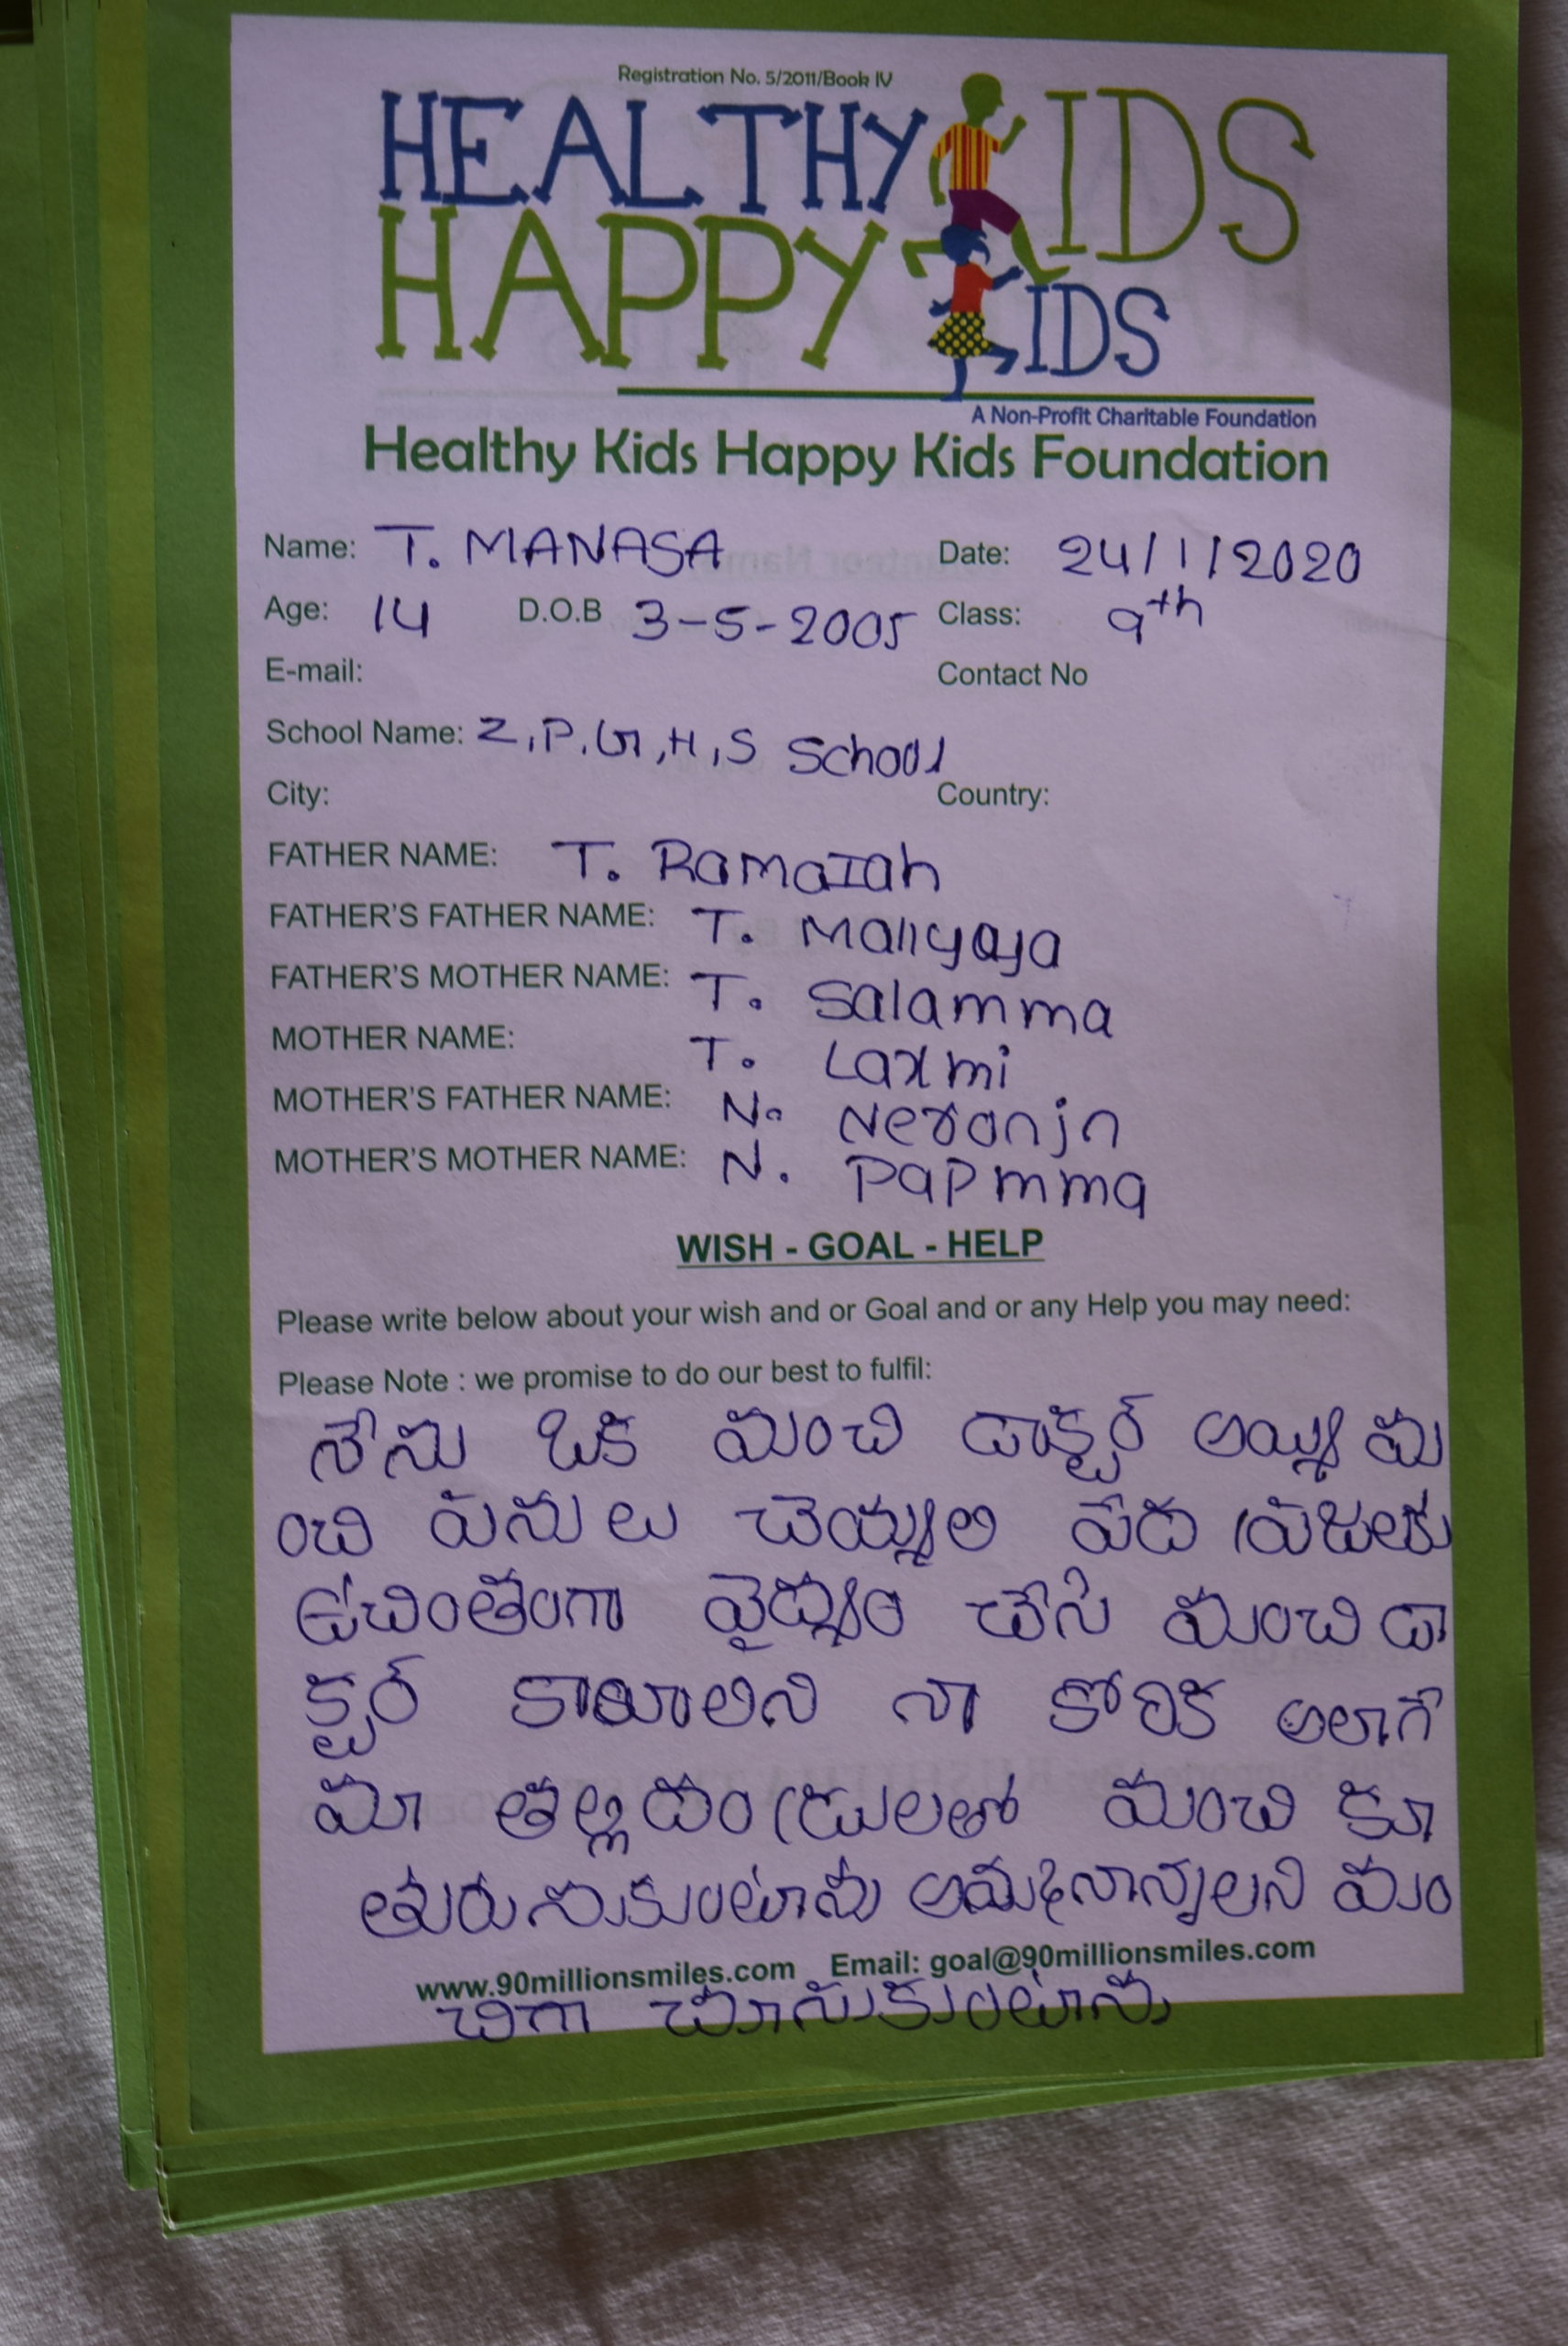 Registration No. 5/2011/Book IV
HEALTHY KIDS
HAPPY KIDS
A Non-Profit Charitable Foundation
Healthy Kids Happy Kids Foundation
Name: T. MANASA Date: 24/1/2020
Age: 14 D.O.B 3-5-2005 Class: 9th
E-mail: Contact No
School Name: Z,P,G,H,S School
City: Country:
FATHER NAME: T. RamaIah
FATHER'S FATHER NAME: T. Mallyaya
FATHER'S MOTHER NAME: T. Salamma
MOTHER NAME: T. Laxmi
MOTHER'S FATHER NAME: N. Neranjn
MOTHER'S MOTHER NAME: N. Papmma
WISH - GOAL - HELP
Please write below about your wish and or Goal and or any Help you may need:
Please Note : we promise to do our best to fulfil:
నేను ఒక మంచి డాక్టర్ అయ్యి మ
ంచి పనులు చెయ్యాలి పేద ప్రజలకు
ఉచింతంగా వైద్యం చేసి మంచి డా
క్టర్ కావాలిని నా కోరిక అలాగే
మా తల్లిదండ్రులతో మంచి కూ
తురునుకుంటాను అమ్మనాన్నలని మం
www.90millionsmiles.com Email: goal@90millionsmiles.com
చిగా చూసుకుంటాను